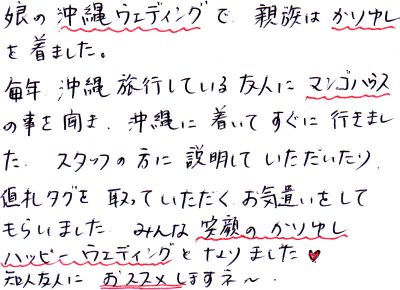 娘の沖縄ウエディングで、親族はかりゆし
を着ました。
毎年、沖縄旅行している友人にマンゴハウス
の事を聞き、沖縄に着いてすぐに行きまし
た。スタッフの方に説明していただいたり、
値札タグを取っていただくお気遣いをして
もらいました。みんな笑顔のかりゆし
ハッピーウエディングとなりました♥
知人友人におススメしますネ〜。